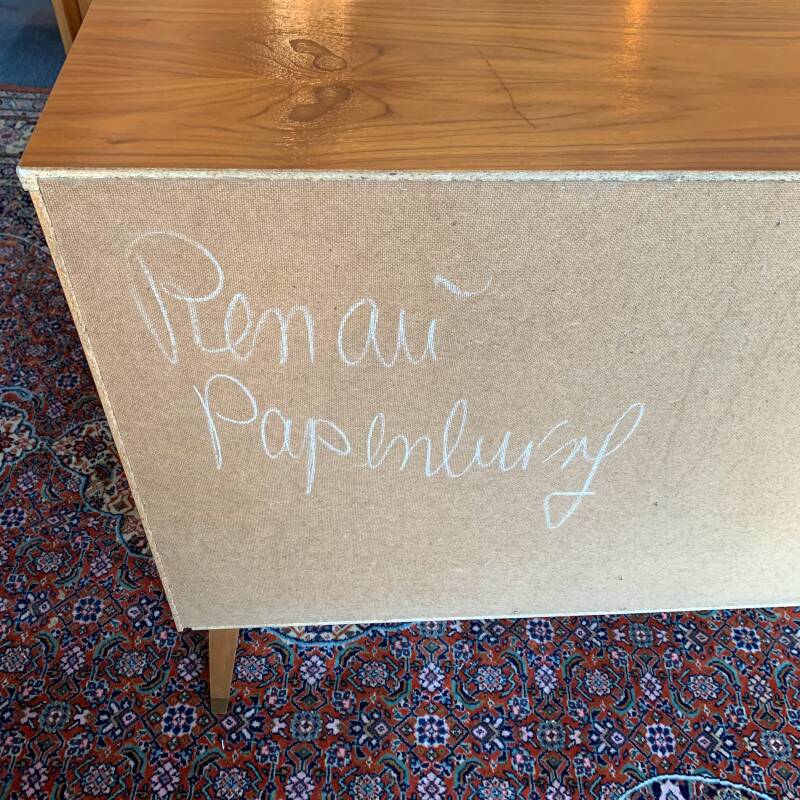 Renaŭ
Papenburg